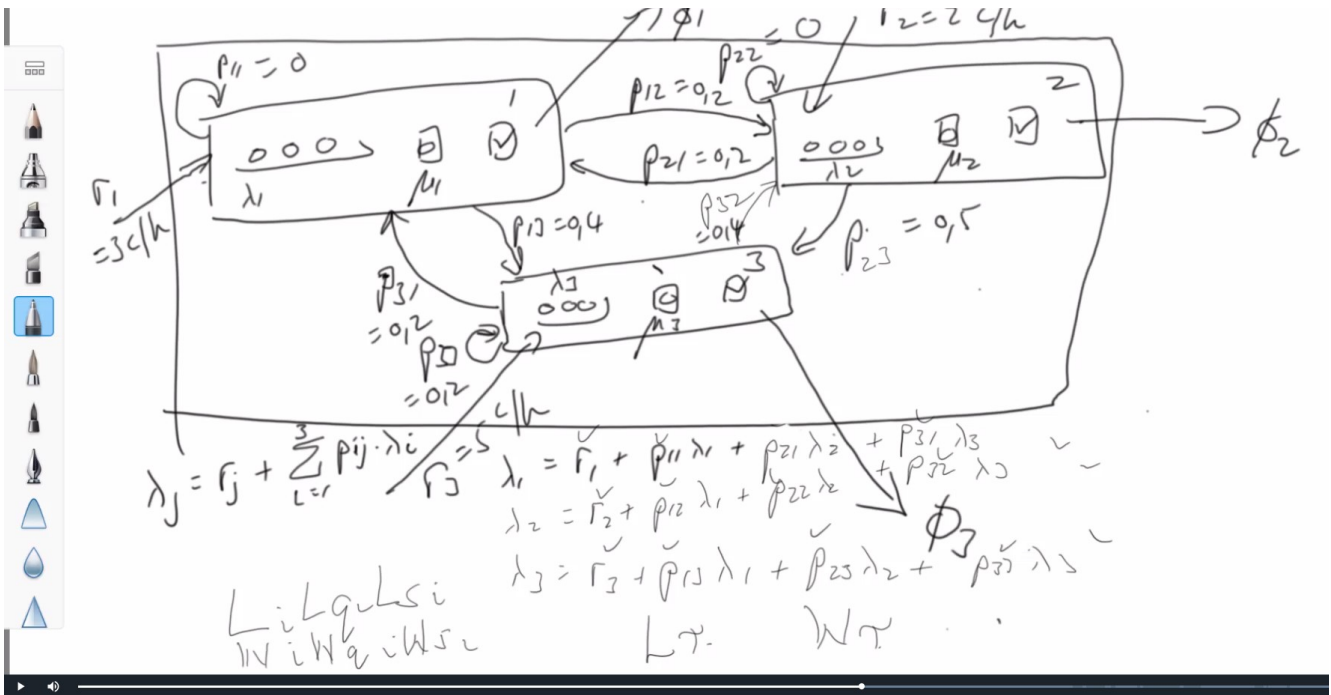 ϕ1
r2=2 c/h
p11 = 0
p22 = 0
1
p12=0,2
2
ϕ2
p21=0,2
λ1
μ1
λ2
μ2
r1
=3c/h
p32
=0,4
p13=0,4
p23 = 0,5
p31
=0,2
λ3
3
μ3
p33
=0,2
r3=5 c/h
λj = rj + Σ pij·λi
3
i=1
λ1 = r1 + p11λ1 + p21λ2 + p31λ3
λ2 = r2 + p12λ1 + p22λ2 + p32λ3
ϕ3
λ3 = r3 + p13λ1 + p23λ2 + p33λ3
Li Lqi Lsi
Wi Wqi Wsi
LT.
WT